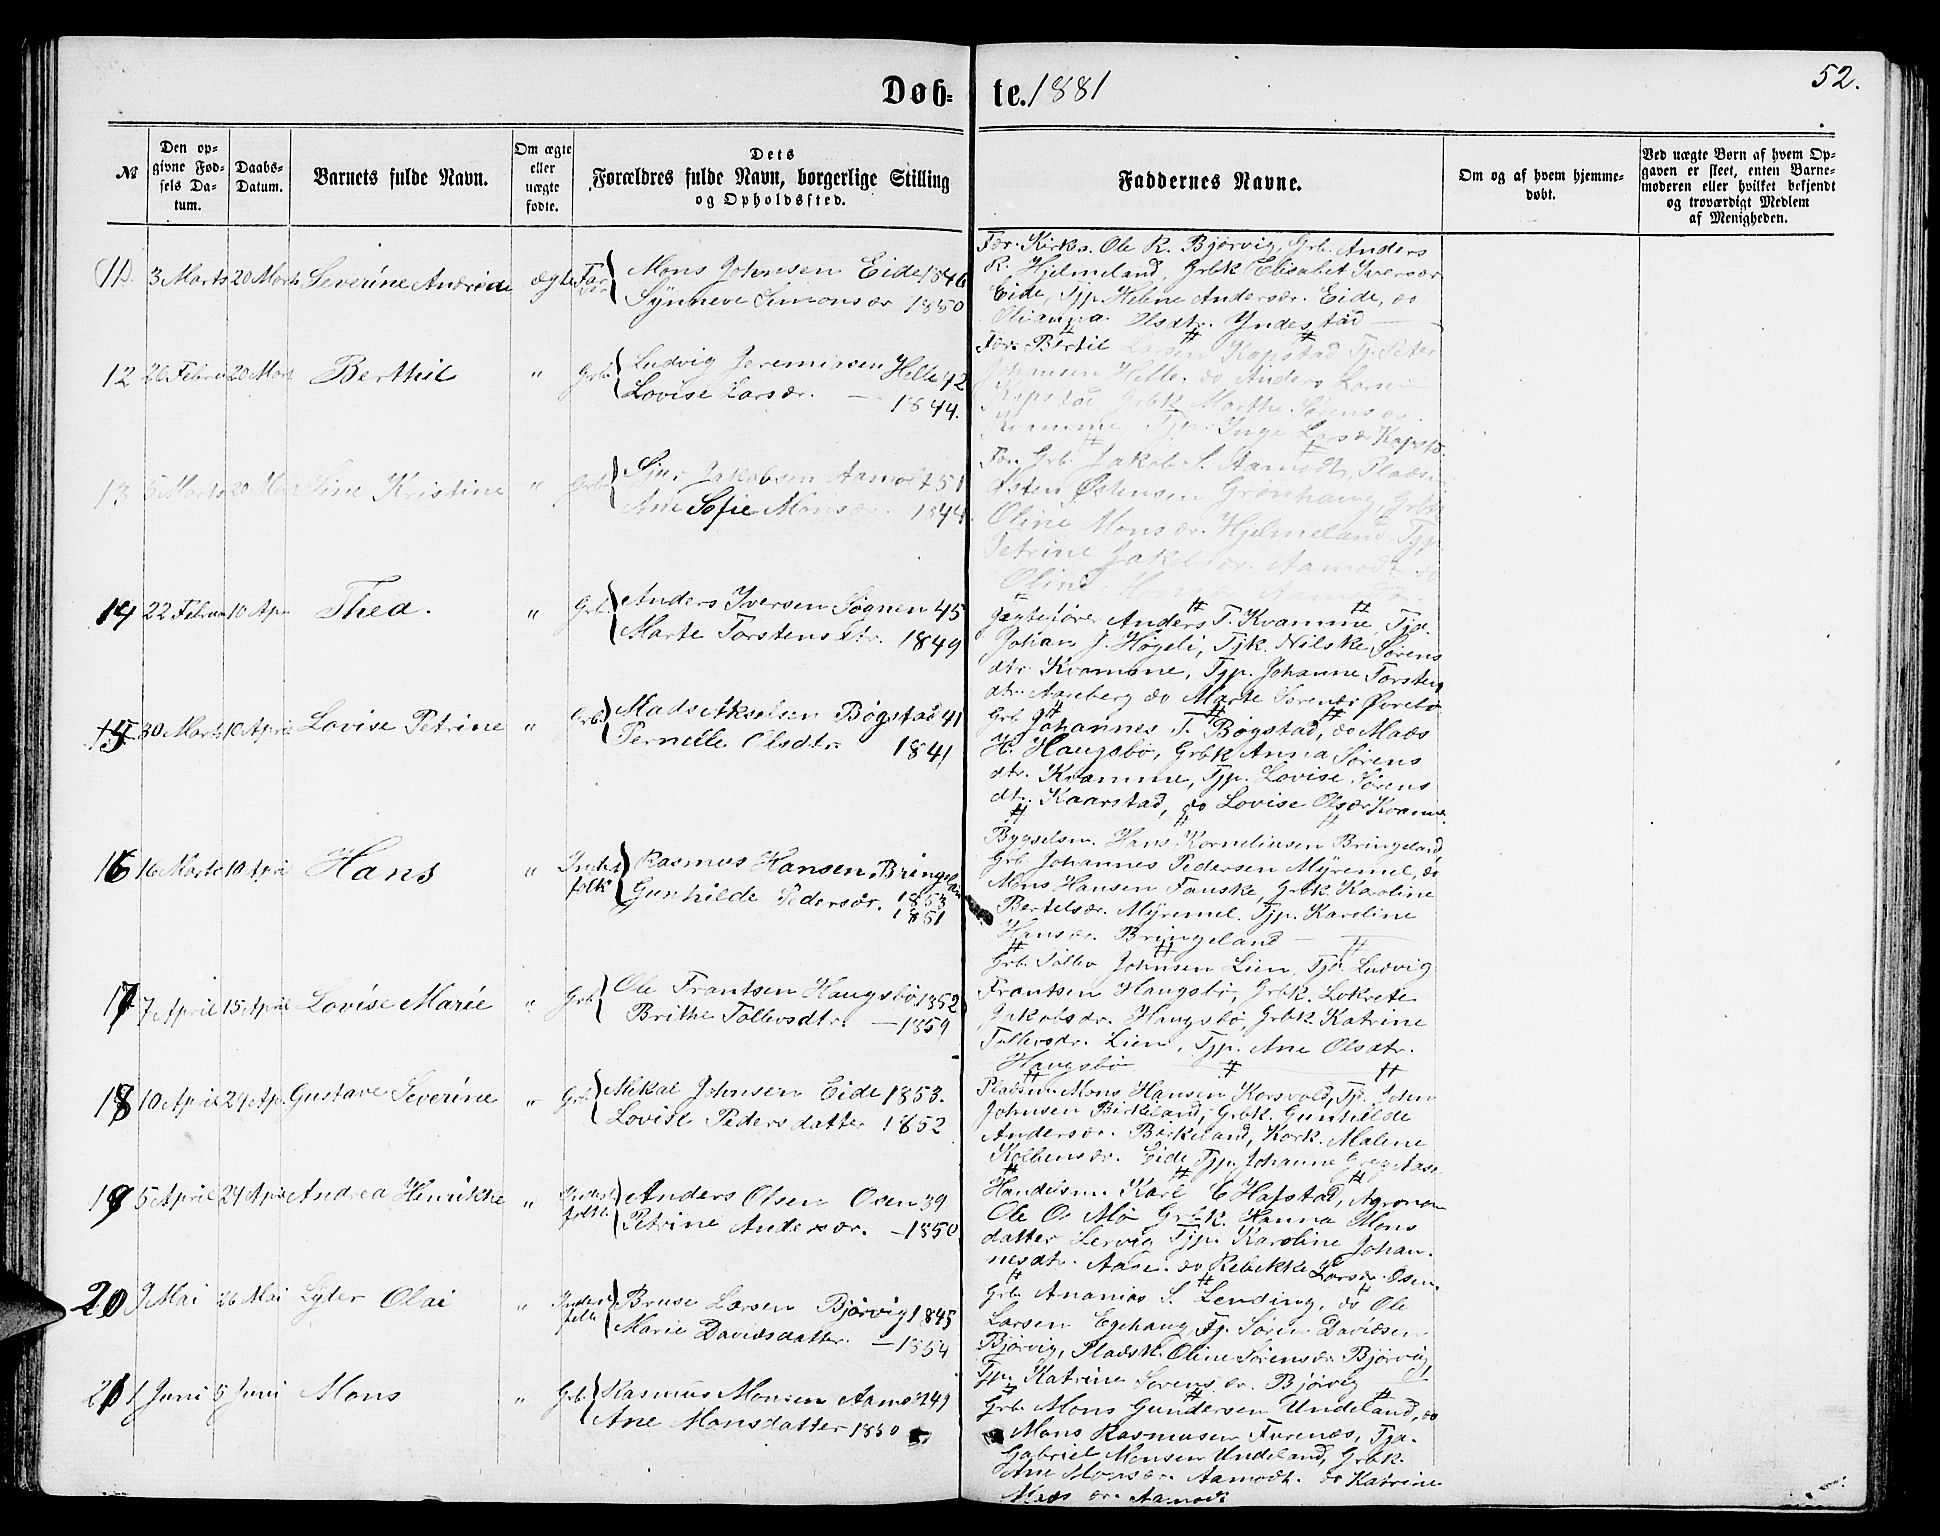 Døb=
te. 1881
52.
№
Den op=
givne Fød=
sels Da=
tum.
Daabs=
Datum.
Barnets fulde Navn.
Om ægte
eller
uægte
fødte.
Dets
Forældres fulde Navn, borgerlige Stilling
og Opholdssted.
Faddernes Navne.
Om og af hvem hjemme=
døbt.
Ved uægte Børn af hvem Op=
gaven er skeet, enten Barne=
moderen eller hvilket bekjendt
og troværdigt Medlem
af Menigheden.
11. 3 Marts 20 Marts Severine Andrine ægte
Mons Johnsen Eide 1846
Synneve Simonsdr 1850
Kirkes. Ole R. Bjørvig, Grb. Anders
R. Hjelmeland, Grbk Elisabet Iversdr
Eide, Tjp. Helene Andersdr. Eide, do
Olsdtr. Yndestad
12 20 Marts Berthil " Grb
Ludvig Jeremiesen Helle 42
Lovise Larsdr. — 1844.
Bertil Larsen Kapstad Tj. Peter
Johansen Helle, do Anders Larsen
Kapstad Grbk Marthe Sørensdr
Kvamme Tjp. Inge Larsdr Kapst.
13 5 Marts 20 Mars Sine Kristine " Grb
Sjur Jakobsen Aamot 51
Ane Sofie Monsdr. 1844
Grb Jakob S. Aamodt, Plads.
Østen Østensen Grønhaug, Grbk
Oline Monsdr. Hjelmeland, Tjp.
Petrine Jakobsdr. Aamodt do
Oline Monsdr Aamodt.
14 22 Februar 10 Apr Thea. " Grb
Anders Iversen Sognen 45
Marte Torstensdtr. 1849
Jegtefører Anders T. Kvamme, Tjd.
Johan J. Høgeli, Tjk. Nilske Sørens
dtr Kvamme, Tjp. Johanne Torstens
dtr. Aaseberg do Marte Sørensdr Øvrebø
15 30 Marts 10 April Lovise Petrine " Grb
Mads Akselsen Bøgstad 41
Pernelle Olsdtr 1841
Grb Johannes T. Bøgstad, do Mads
H. Haugsbø, Grbk Anna Sørens
dtr. Kvamme, Tjp. Lovise Sørens
dtr. Kaarstad, do Lovise Olsdr Kvamme
16 16 Marts 10 April Hans " Inderst
folk
Rasmus Hansen Bringeland
Gunhilde Pedersdr. 1853
1851
Bygselsm. Hans Korneliusen Bringeland
Grb. Johannes Pedersen Myremel, do
Mons Hansen Fauske, Grbk. Karoline
Bertelsdr. Myremel. Tjp. Karoline
Hansdr. Bringeland —
17 7 April 15 April Lovise Marie " Grb
Ole Frantsen Haugsbø 1852
Brithe Tollevsdtr. — 1859
Grb. Tollev Johnsen Lien, Tjd. Ludvig
Frantsen Haugsbø, Grbk. Lokrete
Jakobsdr. Haugsbø, Grbk Katrine
Tollevsdr. Lien, Tjp. Ane Olsdtr.
Haugsbø
18 10 April 24 Apr Gustave Severine " Grb
Mikal Johnsen Eide 1853.
Lovise Pedersdatter 1852
Pladsm Mons Hansen Korsvold, Tjd. John
Johnsen Birkeland, Grbk. Gunhilde
Andersdr. Birkeland, Kork. Malene
Eide Tjp. Johanne
19 5 April 24 Apri Andrea Henrikke " Inderst
folk
Anders Olsen Osen 39
Petrine Andersdr. — 1850
Handelsm. Karl E Hafstad, Agronom
Ole O. Mø Grbk. Hanna Mons
datter Lervig Tjp. Karoline Johan-
nesdtr. Aase. do Rebekke Larsdr Osen.
20 9 Mai 26 Mai Syler Olai " Inderst
folk
Bruse Larsen Bjørvig 1845
Marie Davidsdatter. — 1854
Grb. Ananias S. Lending, do Ole
Larsen Egehaug Tj. Søren Davidsen
Bjørvig, Pladsk. Oline Sørensdr Bjørvig
Tjp. Katrine Sørensdr. Bjørvig
21 1 Juni 5 Juni Mons " Grb
Rasmus Monsen Aamodt 49
Ane Monsdatter 1850
Grb. Mons Gundersen Undeland, do
Mons Rasmusen Furenes, Tjd.
Gabriel Monsen Undeland, Grbk.
Ane Monsdr. Aamodt. do Katrine
Madsdr. Aamodt